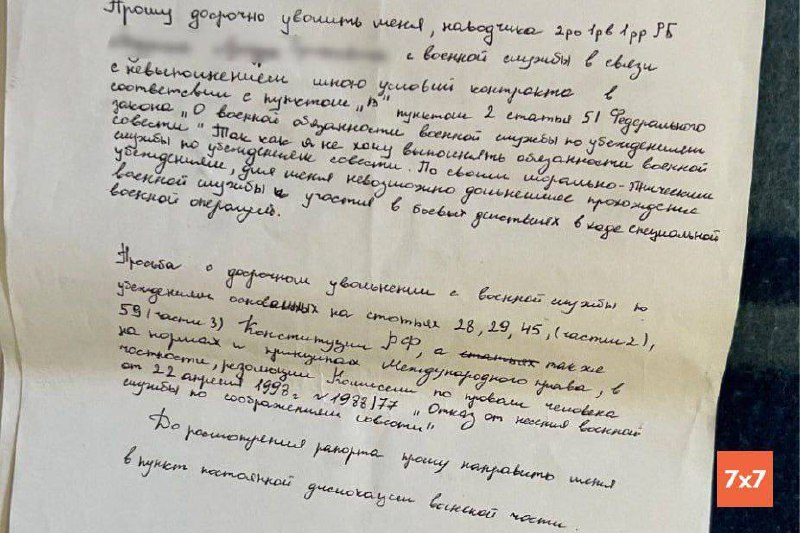 Прошу досрочно уволить меня, наводчика 2ро 1рв 1рр РБ
с военной службы в связи
с невыполнением мною условий контракта в
соответствии с пунктом „в" пунктом 2 статья 51 Федерального
закона „О военной обязанности военной службы по убеждениям
совести" Так как я не хочу выполнять обязанности военной
службы по убеждениям совести. По своим морально-этическим
убеждениям, для меня невозможно дальнейшее прохождение
военной службы и участия в боевых действиях в ходе специальной
военной операции.
Просьба о досрочном увольнении с военной службы по
убеждениям основанных на статьях 28, 29, 45, (части 2),
59 (части 3) Конституции РФ, а статьях также
на нормах и принципах Международного права, в
частности, резолюции Комиссии по правам человека
от 22 апреля 1998г №1988/77 „Отказ от несения военной
службы по соображениям совести"
До рассмотрения рапорта прошу направить меня
в пункт постоянной дислокации воинской части.
7x7